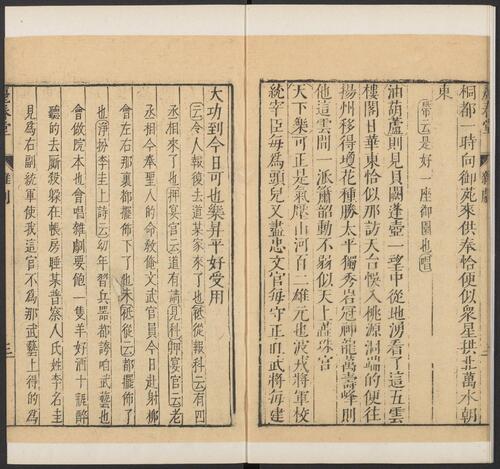 麗春堂
雜劇
桐都一時向御苑來供奉恰便似衆星拱北萬水朝
東
帶云是好一座御園也唱
油葫蘆則見貝闕蓬壺一望中從地湧看了這五雲
樓閣日華東恰似那訪天台悞入桃源洞端的便往
揚州移得瓊花種勝太平獨秀岩冠神龍萬壽峰則
他這雲間一派簫韶動不弱似天上蕊珠宮
天下樂可正是氣壓山河百二雄元也波戎將軍校
統宰臣每爲頭兒又盡忠文官每守正直武將每建
大功到今日可也樂昇平好受用
云令人報復去道某家來了也祗從報科云有四
丞相來了也押宴官云道有請見科押宴官云老
丞相今奉聖人的命教俺文武官員今日赴射柳
會左右那裏都擺佈下了也未祗從云都擺佈了
也淨扮李圭上詩云幼年習兵器都誇咱武藝也
會做院本也會唱雜劇要飽一隻羊好酒十瓶醉
聽的去廝殺躲在帳房睡某普察人氏姓李名圭
見爲右副統軍使我這官不爲那武藝上得的爲
麗春堂
雜劇
三